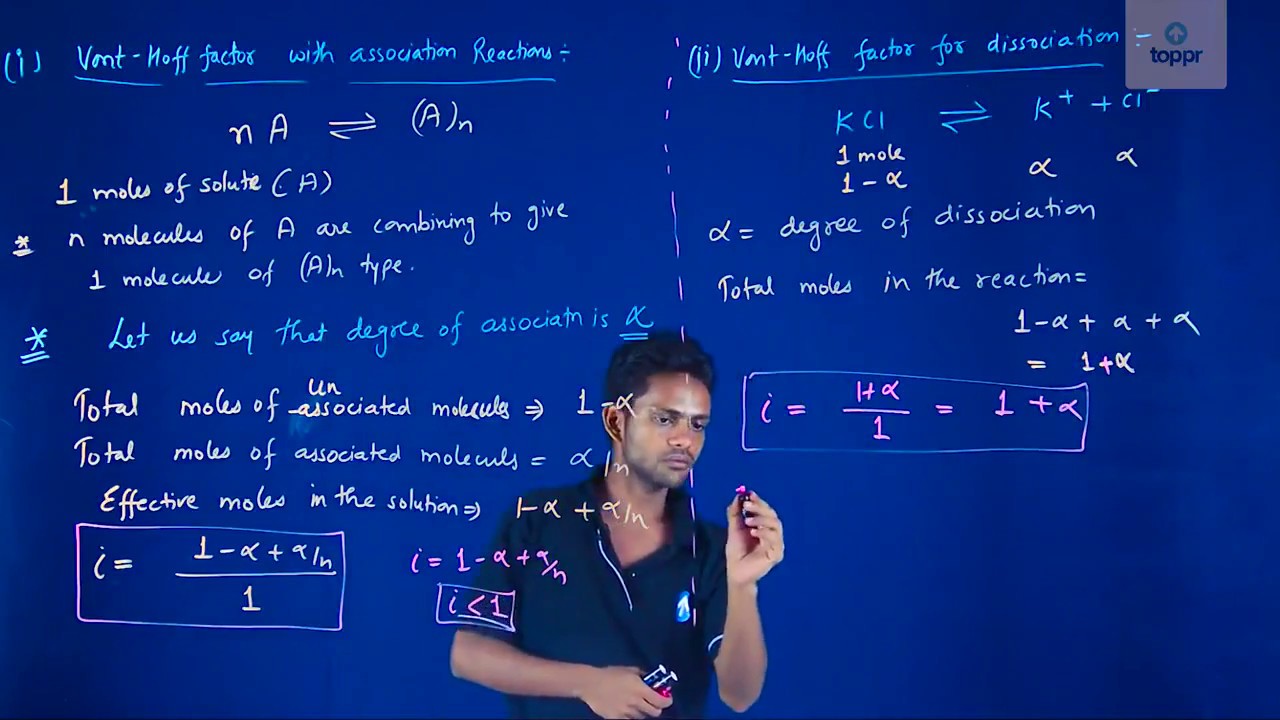 (i) Vant-Hoff factor with association Reactions:-
n A ⇌ (A)n
1 moles of solute (A)
* n molecules of A are combining to give
1 molecule of (A)n type.
* Let us say that degree of associatn is α
Un
Total moles of associated molecules ⇒ 1-α
Total moles of associated moleculs = α/n
Effective moles in the solution ⇒ 1-α + α/n
i = 1-α+α/n / 1
i = 1-α+α/n
i < 1
toppr
(ii) Vant-Hoff factor for dissociation :-
KCl ⇌ K⁺ + Cl⁻
1 mole
1-α α α
α = degree of dissociation
Total moles in the reaction=
1-α + α + α
= 1+α
i = 1+α / 1 = 1+α